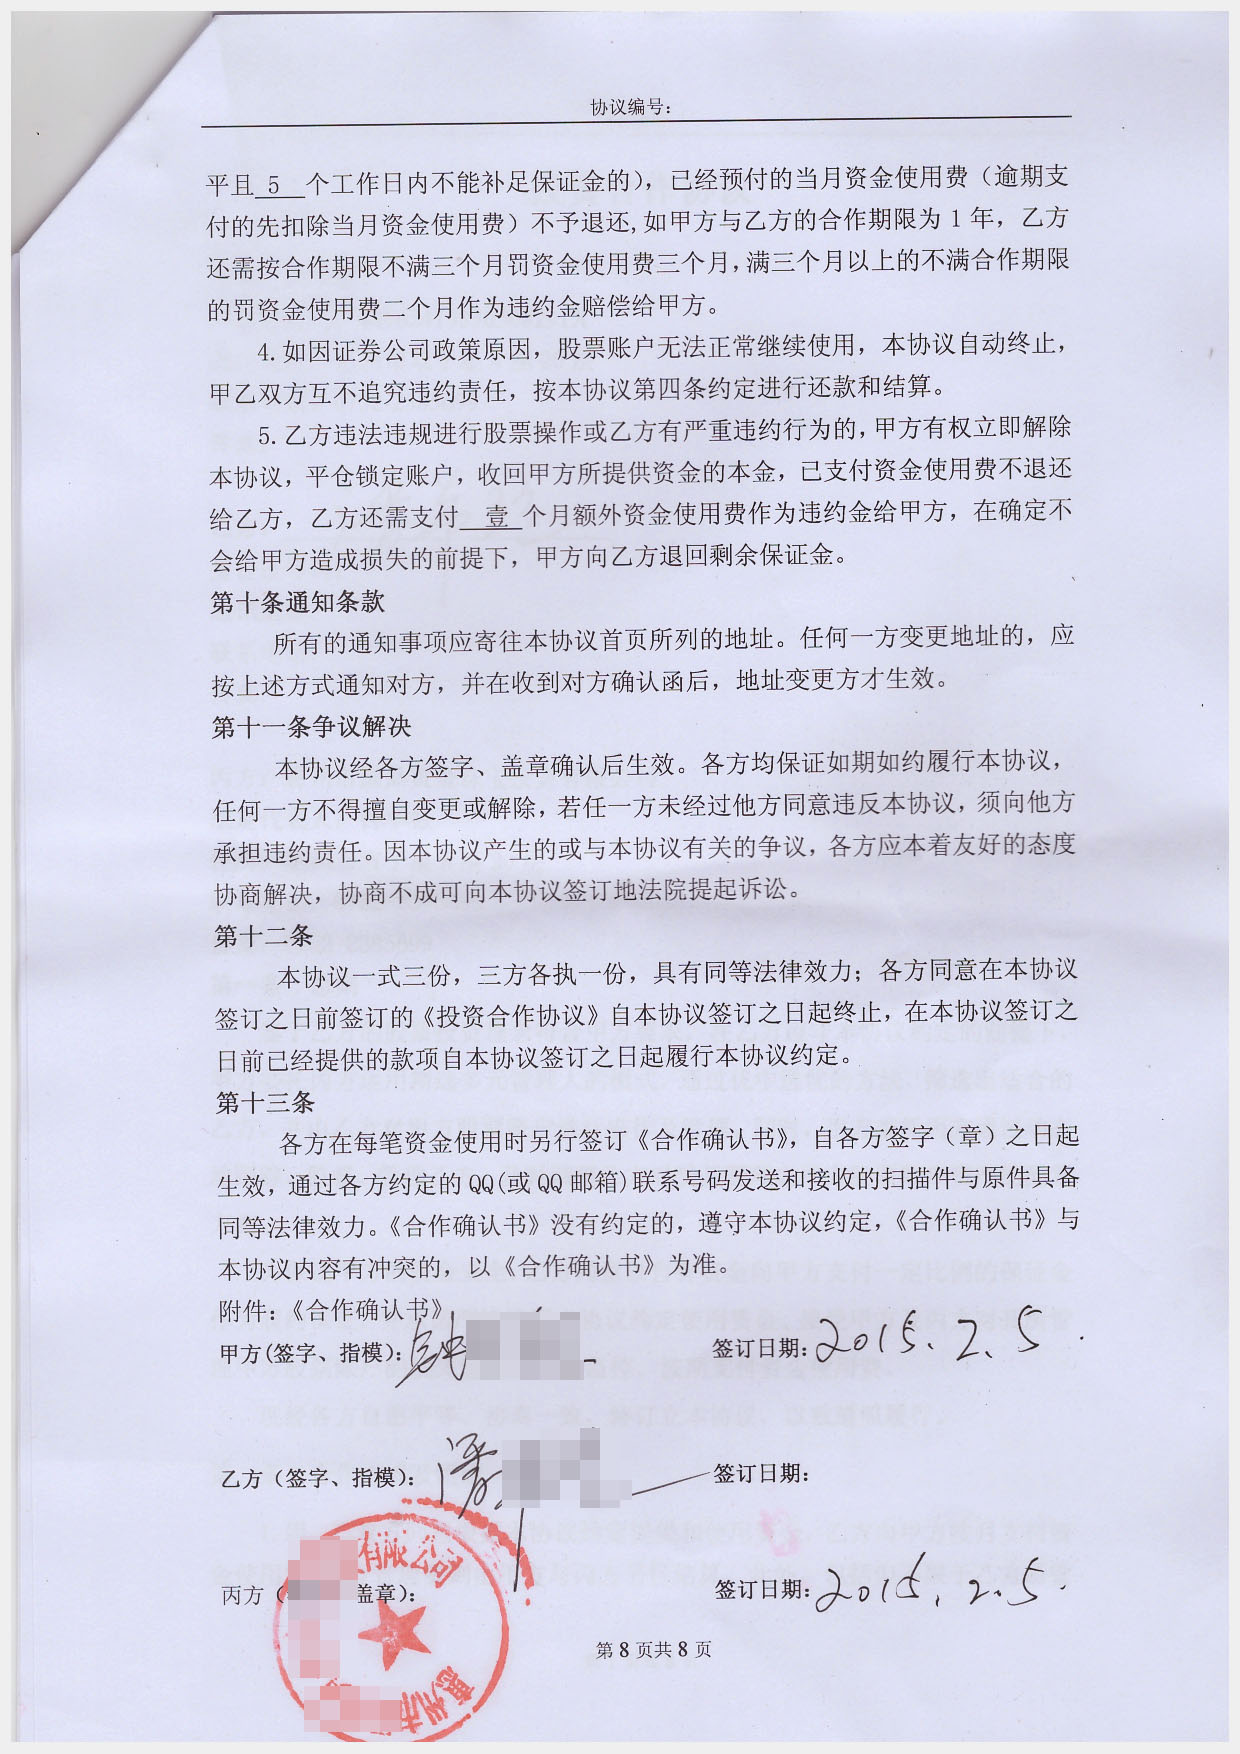 协议编号：
平且 5 个工作日内不能补足保证金的），已经预付的当月资金使用费（逾期支
付的先扣除当月资金使用费）不予退还,如甲方与乙方的合作期限为 1 年，乙方
还需按合作期限不满三个月罚资金使用费三个月,满三个月以上的不满合作期限
的罚资金使用费二个月作为违约金赔偿给甲方。
4.如因证券公司政策原因，股票账户无法正常继续使用，本协议自动终止，
甲乙双方互不追究违约责任，按本协议第四条约定进行还款和结算。
5.乙方违法违规进行股票操作或乙方有严重违约行为的,甲方有权立即解除
本协议，平仓锁定账户，收回甲方所提供资金的本金，已支付资金使用费不退还
给乙方，乙方还需支付 壹 个月额外资金使用费作为违约金给甲方，在确定不
会给甲方造成损失的前提下，甲方向乙方退回剩余保证金。
第十条通知条款
所有的通知事项应寄往本协议首页所列的地址。任何一方变更地址的，应
按上述方式通知对方，并在收到对方确认函后，地址变更方才生效。
第十一条争议解决
本协议经各方签字、盖章确认后生效。各方均保证如期如约履行本协议，
任何一方不得擅自变更或解除，若任一方未经过他方同意违反本协议，须向他方
承担违约责任。因本协议产生的或与本协议有关的争议，各方应本着友好的态度
协商解决，协商不成可向本协议签订地法院提起诉讼。
第十二条
本协议一式三份，三方各执一份，具有同等法律效力；各方同意在本协议
签订之日前签订的《投资合作协议》自本协议签订之日起终止，在本协议签订之
日前已经提供的款项自本协议签订之日起履行本协议约定。
第十三条
各方在每笔资金使用时另行签订《合作确认书》，自各方签字（章）之日起
生效，通过各方约定的 QQ(或 QQ 邮箱)联系号码发送和接收的扫描件与原件具备
同等法律效力。《合作确认书》没有约定的，遵守本协议约定，《合作确认书》与
本协议内容有冲突的，以《合作确认书》为准。
附件：《合作确认书》
甲方(签字、指模)： 签订日期：2015.2.5
乙方（签字、指模）：潘 签订日期：
有限公司
丙方（ 盖章）： 签订日期：2015.2.5
第 8 页共 8 页
惠州市